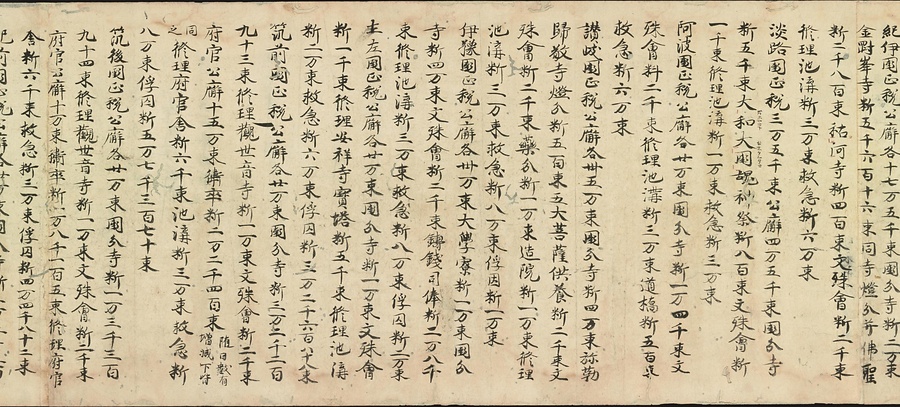 紀伊國正税公廨各十七万五千束國分寺
金對峯寺䉼五千六百十六束同寺燈分并佛聖
䉼二千八百束祐河寺䉼四百束文殊會䉼二千束
修理池溝䉼三万束救急䉼六万束
淡路國正税三万五千束公廨四万五千束國分寺
䉼五千束大和大國魂神祭䉼八百束文殊會䉼
一千束修理池溝䉼一万束救急䉼三万束
阿波國正税公廨各廿万束國分寺䉼一万四千束文
殊會料二千束修理池溝䉼三万束道橋䉼五百束
救急䉼六万束
讃岐國正税公廨各卅五万束國分寺䉼四万束弥勒
歸敬寺燈分䉼五百束五大菩薩供養䉼二千束文
殊會䉼二千束藥分䉼一万束造院䉼一万束修理
池溝䉼三万束救急䉼八万束俘囚䉼一万束
伊豫國正税公廨各卅万束大學寮䉼一万束國分
寺䉼四万束文殊會䉼二千束鑄錢司俸䉼二万八千
束修理池溝䉼三万束救急䉼八万束俘囚䉼二万束
土左國正税公廨各廿万束國分寺䉼一万束文殊會
䉼一千束修理安祥寺寳塔䉼五千束修理池溝
䉼二万束救急䉼六万束俘囚䉼三万二千六百八十八束
筑前國正税公廨各廿万束國分寺䉼三万二千二百
九十三束修理觀世音寺䉼一万束文殊會䉼二千束
府官公廨十五万束衛卒䉼二万二千四百束 随日數有增減下皆
同之 修理府官舎䉼六千束池溝䉼三万束救急䉼
八万束俘囚䉼五万七千三百七十束
筑後國正税公廨各廿万束國分寺䉼一万三千三百
九十四束修理觀世音寺䉼一万束文殊會䉼二千束
府官公廨十万束衛卒䉼一万八千一百五束修理府官
舎䉼六千束救急䉼三万束俘囚䉼四万四千八十二束